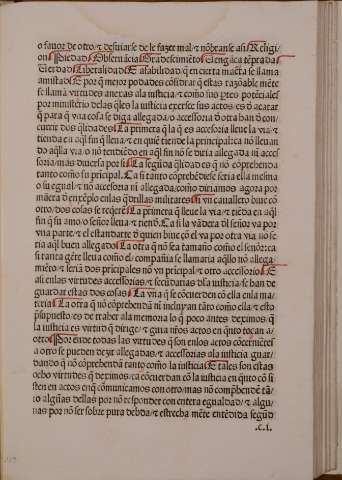 o fauor de otro: ⁊ desuiarse de le fazer mal: ⁊ nōbranse asi Religi
on Piedad Obseruācia Gradescimiēto Uengāça tēprada
Uerdad Liberalidad E afabilidad q̄ en cierta maēra se llama
amistad E por q̄ mejor podades cōsidrar q̄ estas razōable mēte
se llamā virtudes anexas ala iusticia ⁊ como sus ptes potēciales
por ministerio delas q̄les la iusticia exersce sus actos. es d̄ acatar
q̄ para q̄ vna cosa se diga allegada o accessoria d̄ otra ban d̄ con
currir dos q̄lidades La primera q̄ la q̄ es accessoria lleue la via ⁊
tienda en aq̄l fin q̄ lleua ⁊ en quiē tiende la principal: ca nō lleuan
do aq̄lla via. o nō tendiēdo en aq̄l fin nō se diria allegada ni accef
soria mas diuersa por si La segūda q̄lidad es q̄ nō cōprehenda
tanto como su principal. Ca si tanto cōprehēdiese seria ella mesma
o su egual ⁊ nō accesoria ni allegada. como diriamos agora por
maēra d̄ exēplo enlas q̄drillas militares si vn cauallero biue cō
otro dos cosas se reqerē La primera q̄ lleue la via ⁊ tiēda en aq̄l
fin q̄ su amo o señor lleua ⁊ tiend̄. Ca si la vādera dl señor va por
vna parte ⁊ el estandarte d̄ quien biue cō el va por otra via nō se
ria aq̄l buen allegado La otra q̄ nō sea tamaño como el señor: ca
si tanta gēte lleua como el compañia se llamaria aq̄llo nō allega
miēto ⁊ seriā dos principales nō vn pricipal ⁊ otro accessorio E
asi enlas virtudes accessorias ⁊ secūdarias dla iusticia se ban de
guardar estas dos cosas La vna q̄ se cōcuerden cō ella enla ma
teria La otra q̄ nō cōprehendā ni incluyan tāto como ella ⁊ esto
p̄supuesto es de traher ala memoria lo q̄ poco antes deximos q̄
la iusticia es virtud q̄ dirige ⁊ guia nros actos en quāto tocan a
otro Por ende todas las virtudes q̄ son enlos actos cōcernētes
a otro se pueden dezir allegadas ⁊ accessorias ala iusticia guar
dando q̄ nō cōprehendā tanto como la iusticia E tales son estas
ocho virtudes q̄ deximos ca cōcuerdan cō la iusticia en quāto cō si
sten en actos enq̄ comunicamos con otro mas nō comp̄benđē tā
to algūas dellas por nō responder con entera egualdad ⁊ algu
nas por nō ser sobre pura debda ⁊ estrecha mēte entēdida segūd
.c.i.